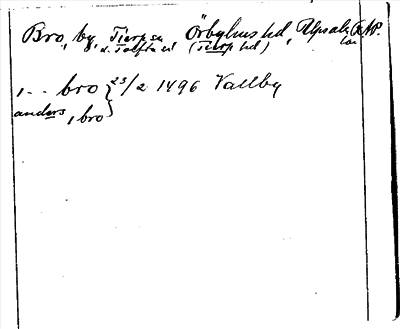 Bro, by, Tierps sn Örbyhus hd, Uppsala RAP.
d. Tolfta sn (Tierp hd) län
i .. bro } 23/2 1496 Vallby
anders, bro